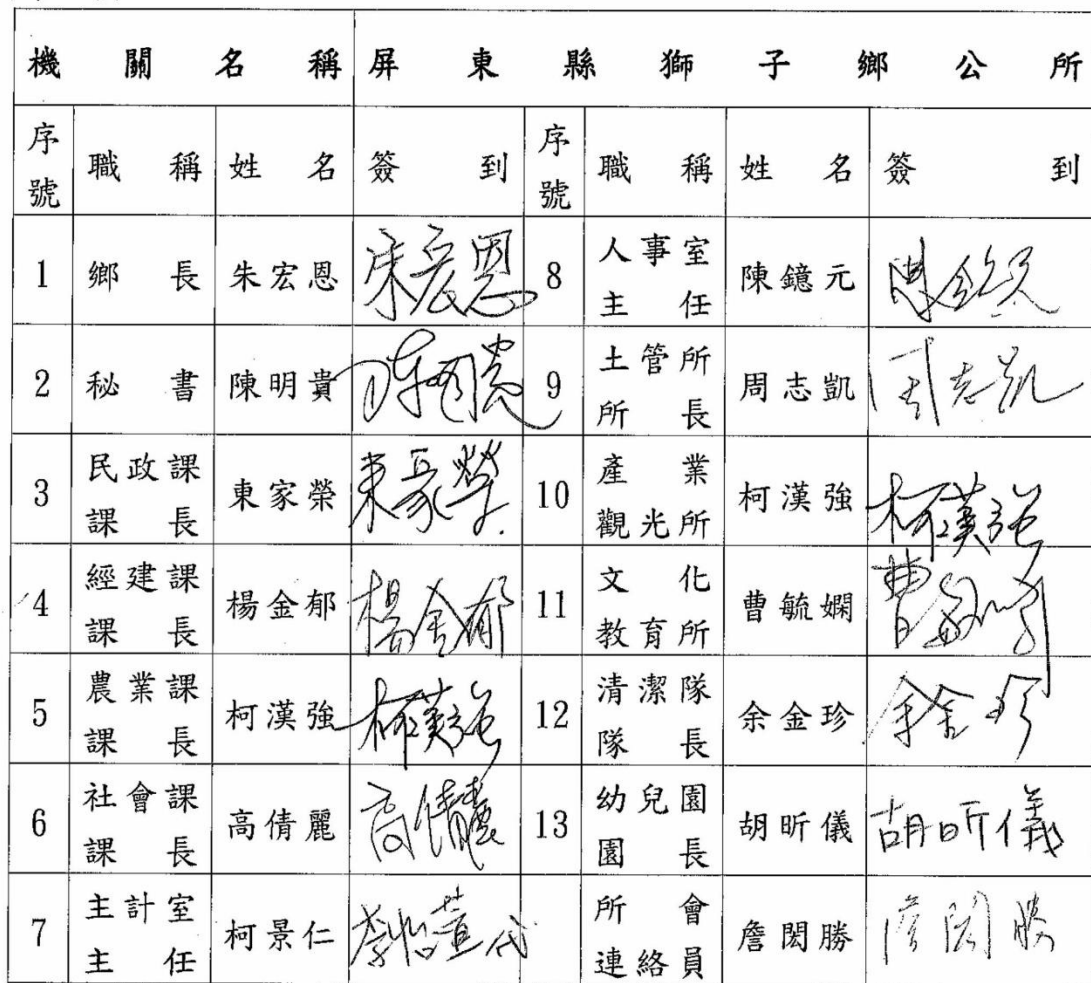 機關名稱 屏東縣獅子鄉公所
序號 職稱 姓名 簽到 序號 職稱 姓名 簽到
1 鄉長 朱宏恩 朱宏恩 8 人事室主任 陳鐿元
2 秘書 陳明貴 9 土管所所長 周志凱 周志凱
3 民政課課長 東家榮 東家榮 10 產業觀光所 柯漢強 柯漢強
4 經建課課長 楊金郁 楊金郁 11 文化教育所 曹毓嫻
5 農業課課長 柯漢強 柯漢強 12 清潔隊隊長 余金珍 余金珍
6 社會課課長 高倩麗 高倩麗 13 幼兒園園長 胡昕儀 胡昕儀
7 主計室主任 柯景仁 代 所會連絡員 詹閎勝 詹閎勝